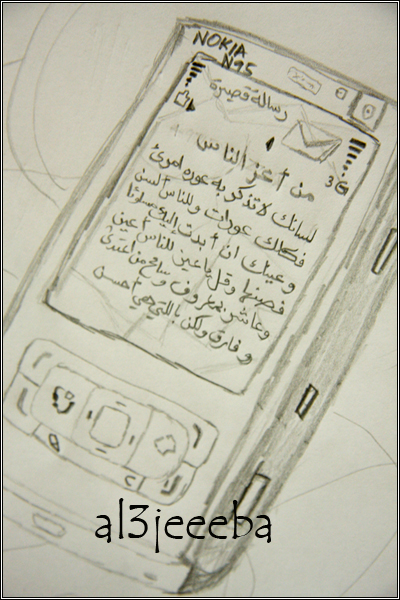 NOKIA
N95
رسالة قصيرة
3G
من أعز الناس
لسانك لا تذكر به عورة امرئ
فكلك عورات وللناس ألسن
وعينك ان أبدت إليك مساوئا
فصنها وقل ياعين للناس أعين
وعاشر بمعروف وسامح من اعتدى
وفارق ولكن بالتي هي أحسن
al3jeeeba